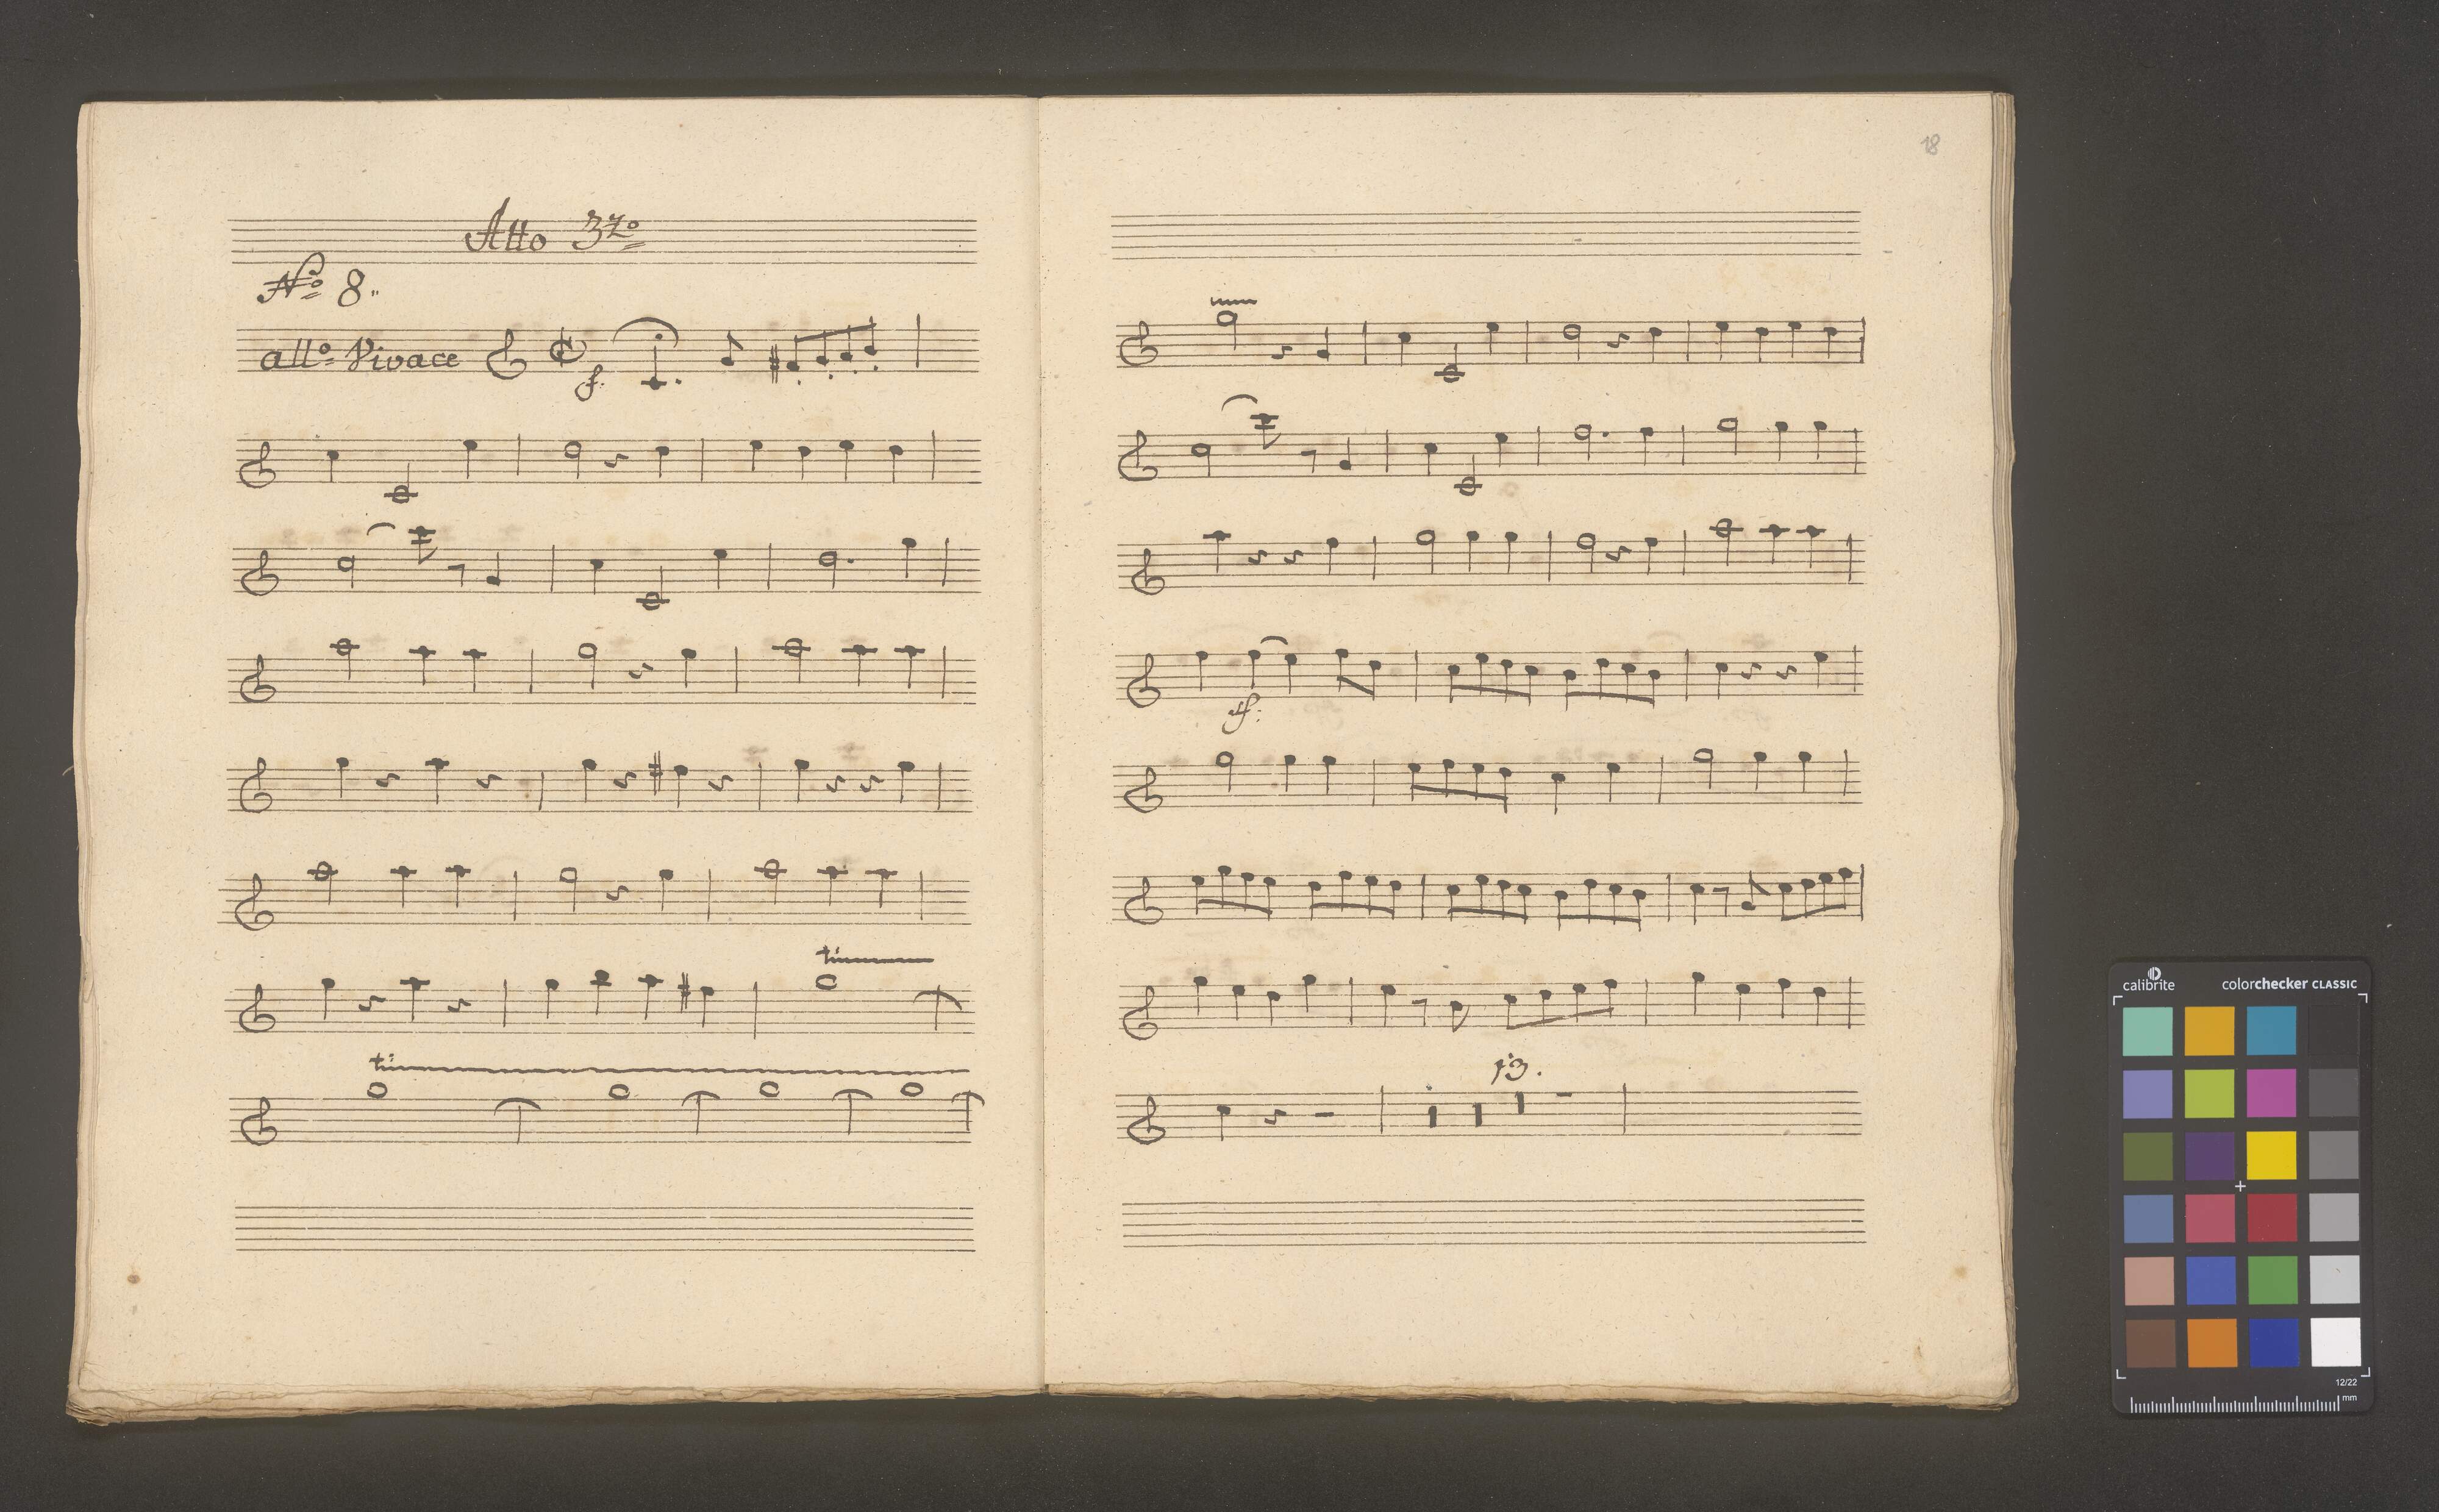 Atto 3zo
No 8.
allo Vivace
f.
tr
tr
18
sf:
13.
calibrite
colorchecker CLASSIC
12/22
mm